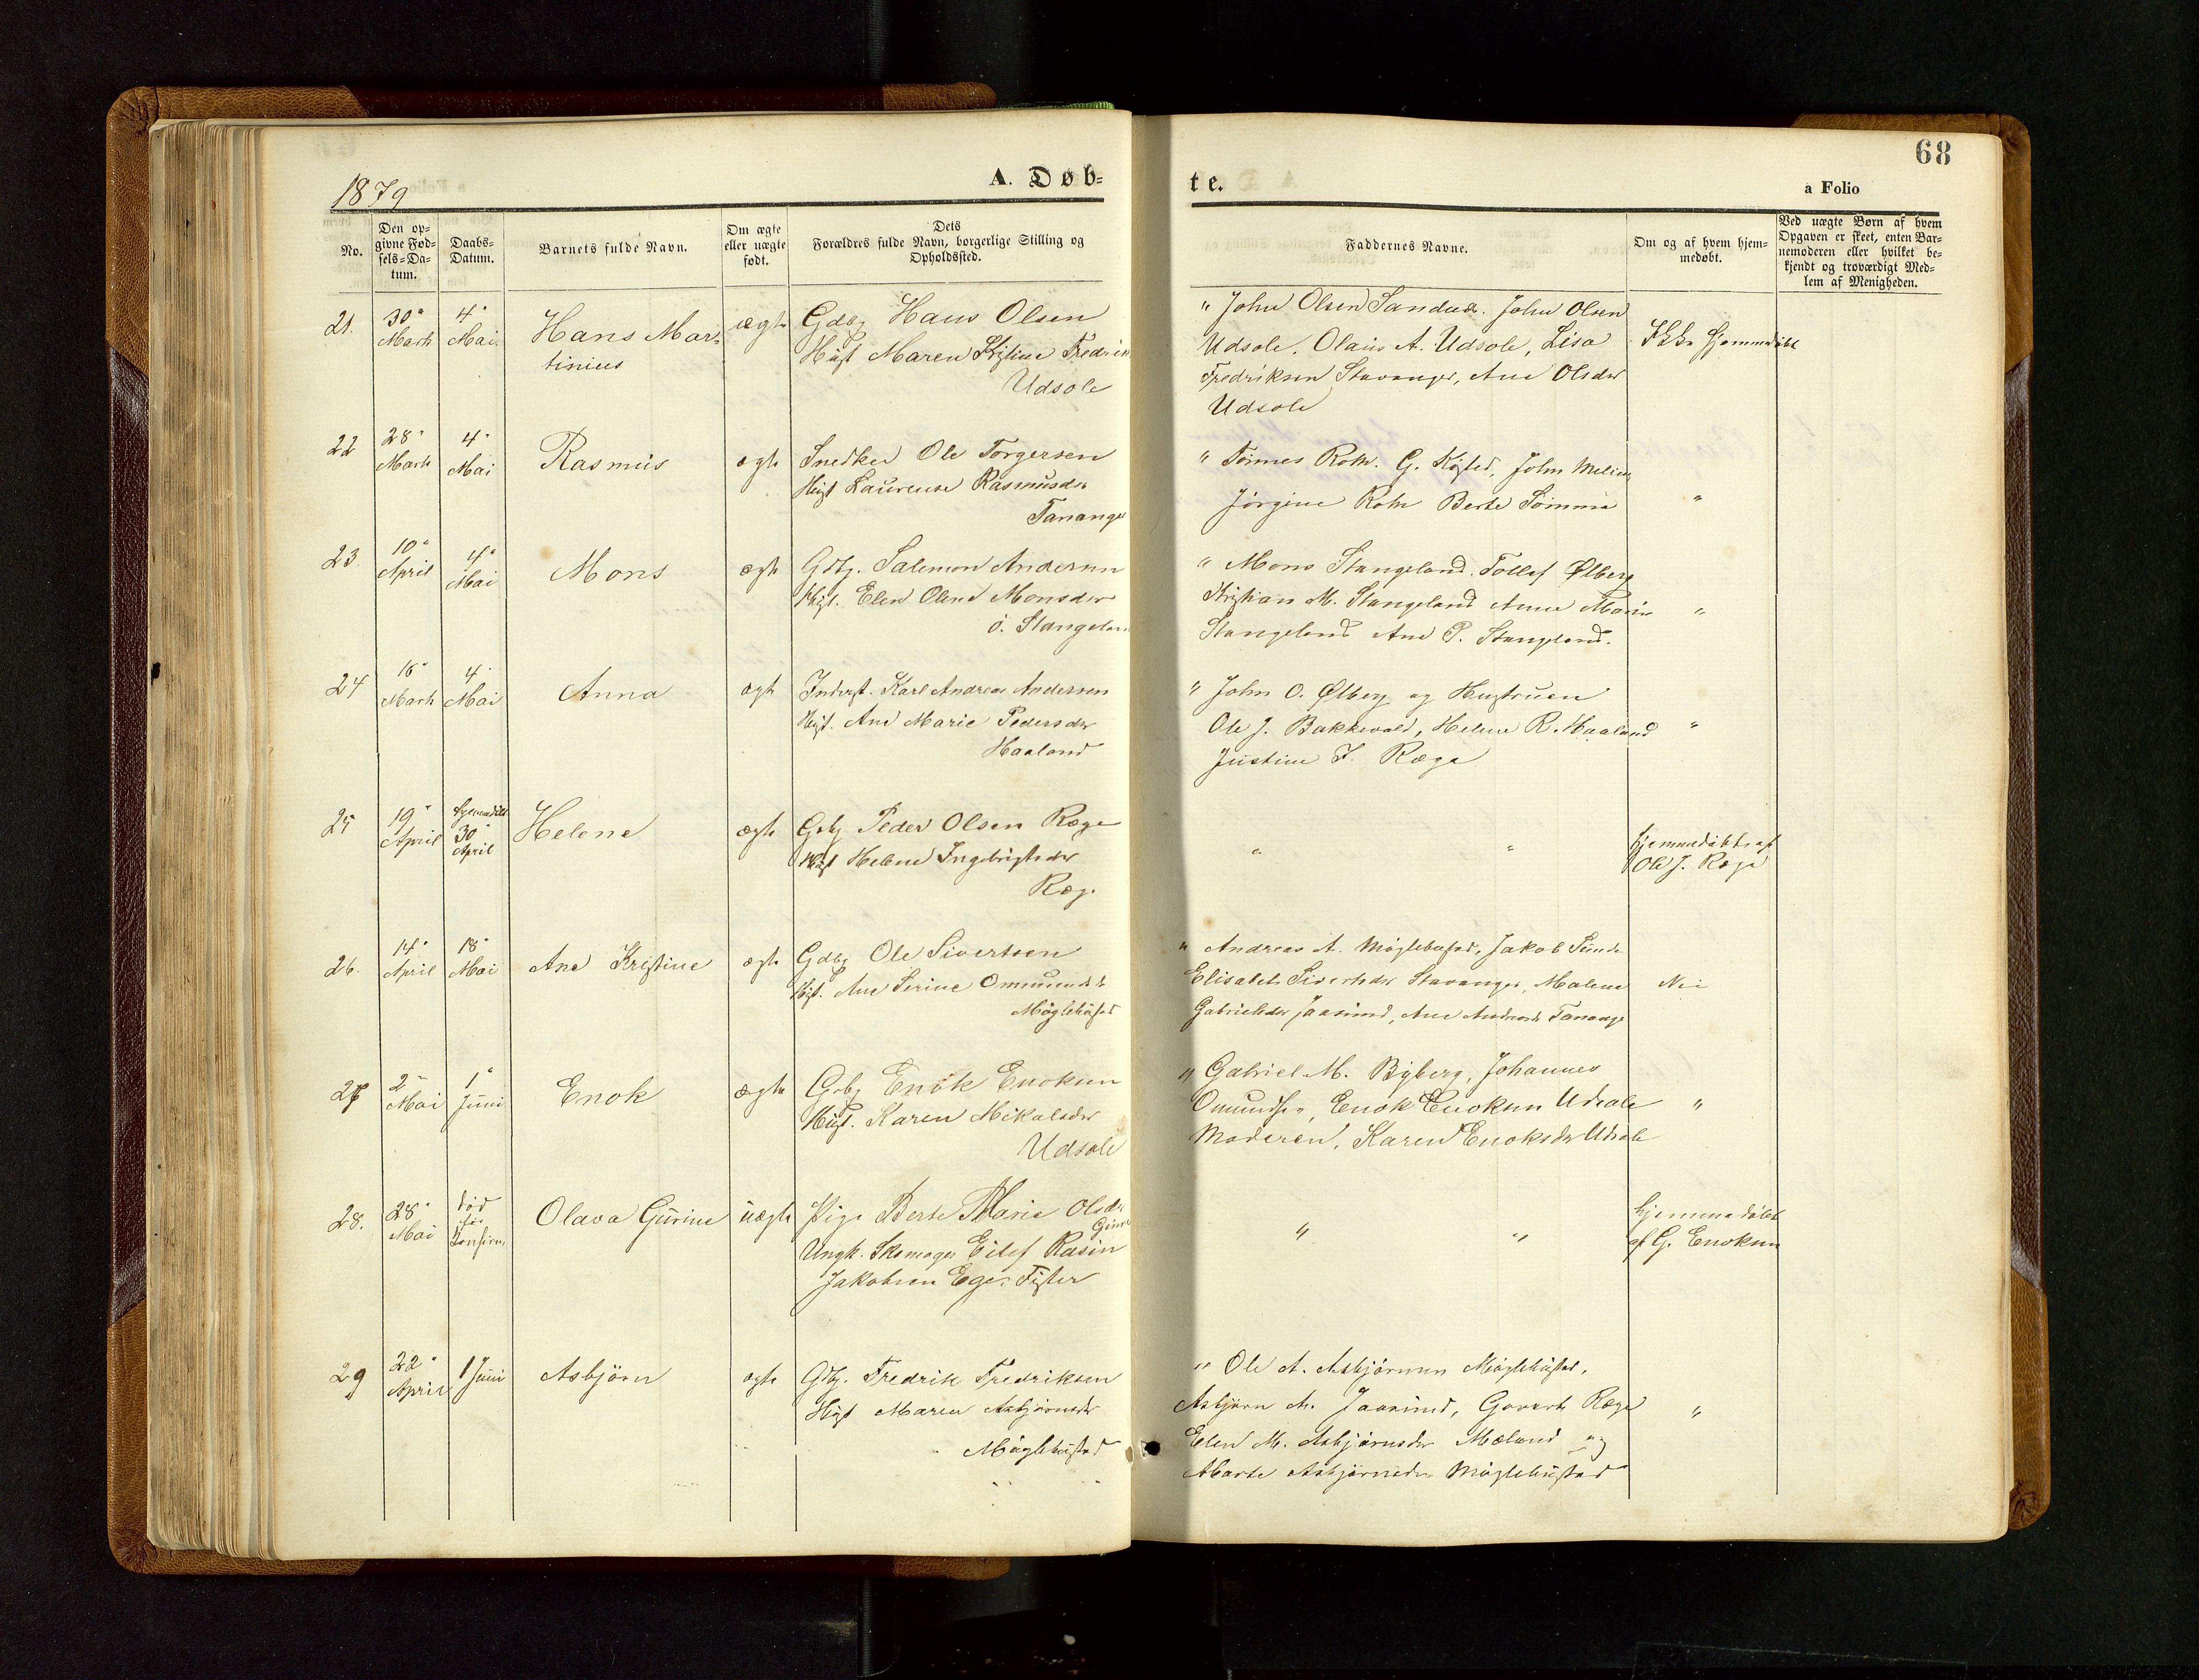 68
1879
A. Døb=
te.
a Folio
No.
Den op=
givne Fød=
sels=Da=
tum.
Daabs=
Datum.
Barnets fulde Navn.
Om ægte
eller uægte
født.
Dets
Forældres fulde Navn, borgerlige Stilling og
Opholdssted.
Faddernes Navne.
Om og af hvem hjem=
medøbt.
Ved uægte Børn af hvem
Opgaven er skeet, enten Bar=
nemoderen eller hvilket be=
kjendt og troværdigt Med=
lem af Menigheden.
21. 30" Marts 4" Mai Hans Mar=
tinius
ægte
Gdbg Hans Olsen
Hust Maren Kristine Fredrik
Udsole
" John Olsen Sandnes. John Olsen
Udsole, Olaus A. Udsole, Lisa
Fredriksen Stavanger, Ane Olsdr
Udsole
Ikke hjemmedøbt
22 28" Marts 4" Mai Rasmus
ægte
Snedker Ole Torgersen
Hust Laurense Rasmusdr
Tananger
" Tønnes Roth. G. Køsted, John Meling
Jørgine Roth Berte Sømme
"
23. 10" April 4" Mai Mons
ægte
Gdbg. Salemon Andersen
Hust. Elen Oline Monsdr
ö. Stangeland
" Mons Stangeland. Tollef Ølberg
Kristian M. Stangeland Anne Marie
Stangeland Ane P. Stangeland.
"
24 16" Marts 4" Mai Anna
ægte
Inderst. Karl Andreas Andersen
Hust. Ane Marie Pedersdr
Haaland
" John O. Ølberg og Hustruen
Ole J. Bakkevold, Helene R. Haaland
Justine I. Ræge
"
25 19" April hjemmedøbt
30" April Helene
ægte
Gdbg Peder Olsen Ræge
Hust Helene Ingebrigtsdr
Ræg.
" "
hjemmedøbt af
Ole J. Ræge
26. 14" April 18" Mai Ane Kristine
ægte
Gdbg Ole Sivertsen
Hust. Ane Serine Omundsdr
Møglebústad
" Andreas A. Møglebustad, Jakob Sunde
Elisabet Sivertsdr Stavanger, Malene
Gabrielsdr Jaasund, Ane Andreasdr Tanange
Nei
27 2" Mai 1" Juni Enok
ægte
Gdbg Enok Enoksen
Hust. Karen Mikalsdr
Udsole
" Gabriel M. Byberg, Johannes
Omundsen, Enok Enoksen Udsole
Moderen, Karen Enoksdr Udsole
"
28. 28" Mai død
før
Konfirm. Olava Gurine
uægte
Pige Berte Marie Olsdr
Ungk. Skomager Eilef Rasin
Jakobsen Eges Fister
" "
hjemmedøbt
af G. Enoksen
29 22" April 1 Juni Asbjörn
ægte
Gdbg. Fredrik Fredriksen
Hust Maren Asbjørnsdr
Møglebustad
" Ole A. Asbjørnsen Møglebustad,
Asbjørn A. Jaasund, Govert Ræge
Elen M. Asbjørnsdr Mæland og
Marte Asbjørnsdr Møglebustad
"